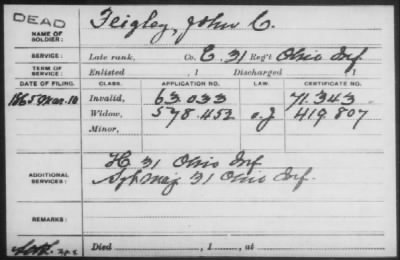 DEAD
NAME OF SOLDIER: Feigley, John C.
SERVICE: Late rank, Co. E. 31 Reg't Ohio Inf
TERM OF SERVICE: Enlisted , 1 Discharged , 1
DATE OF FILING. CLASS. APPLICATION NO. LAW. CERTIFICATE NO.
1865 Mar. 10 Invalid, 63.033 71.343
Widow, 578.452 419.807
Minor,
ADDITIONAL SERVICES: H 31 Ohio Inf
Sgt Maj 31 Ohio Inf.
REMARKS:
Died , 1 , at